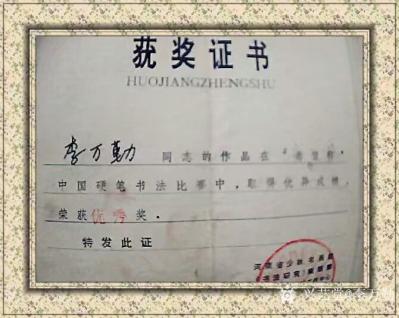 获奖证书
HUOJIANGZHENGSHU
李万勤 同志的作品在
中国硬笔书法比赛中，取得优异成绩，
荣获优秀奖。
特发此证